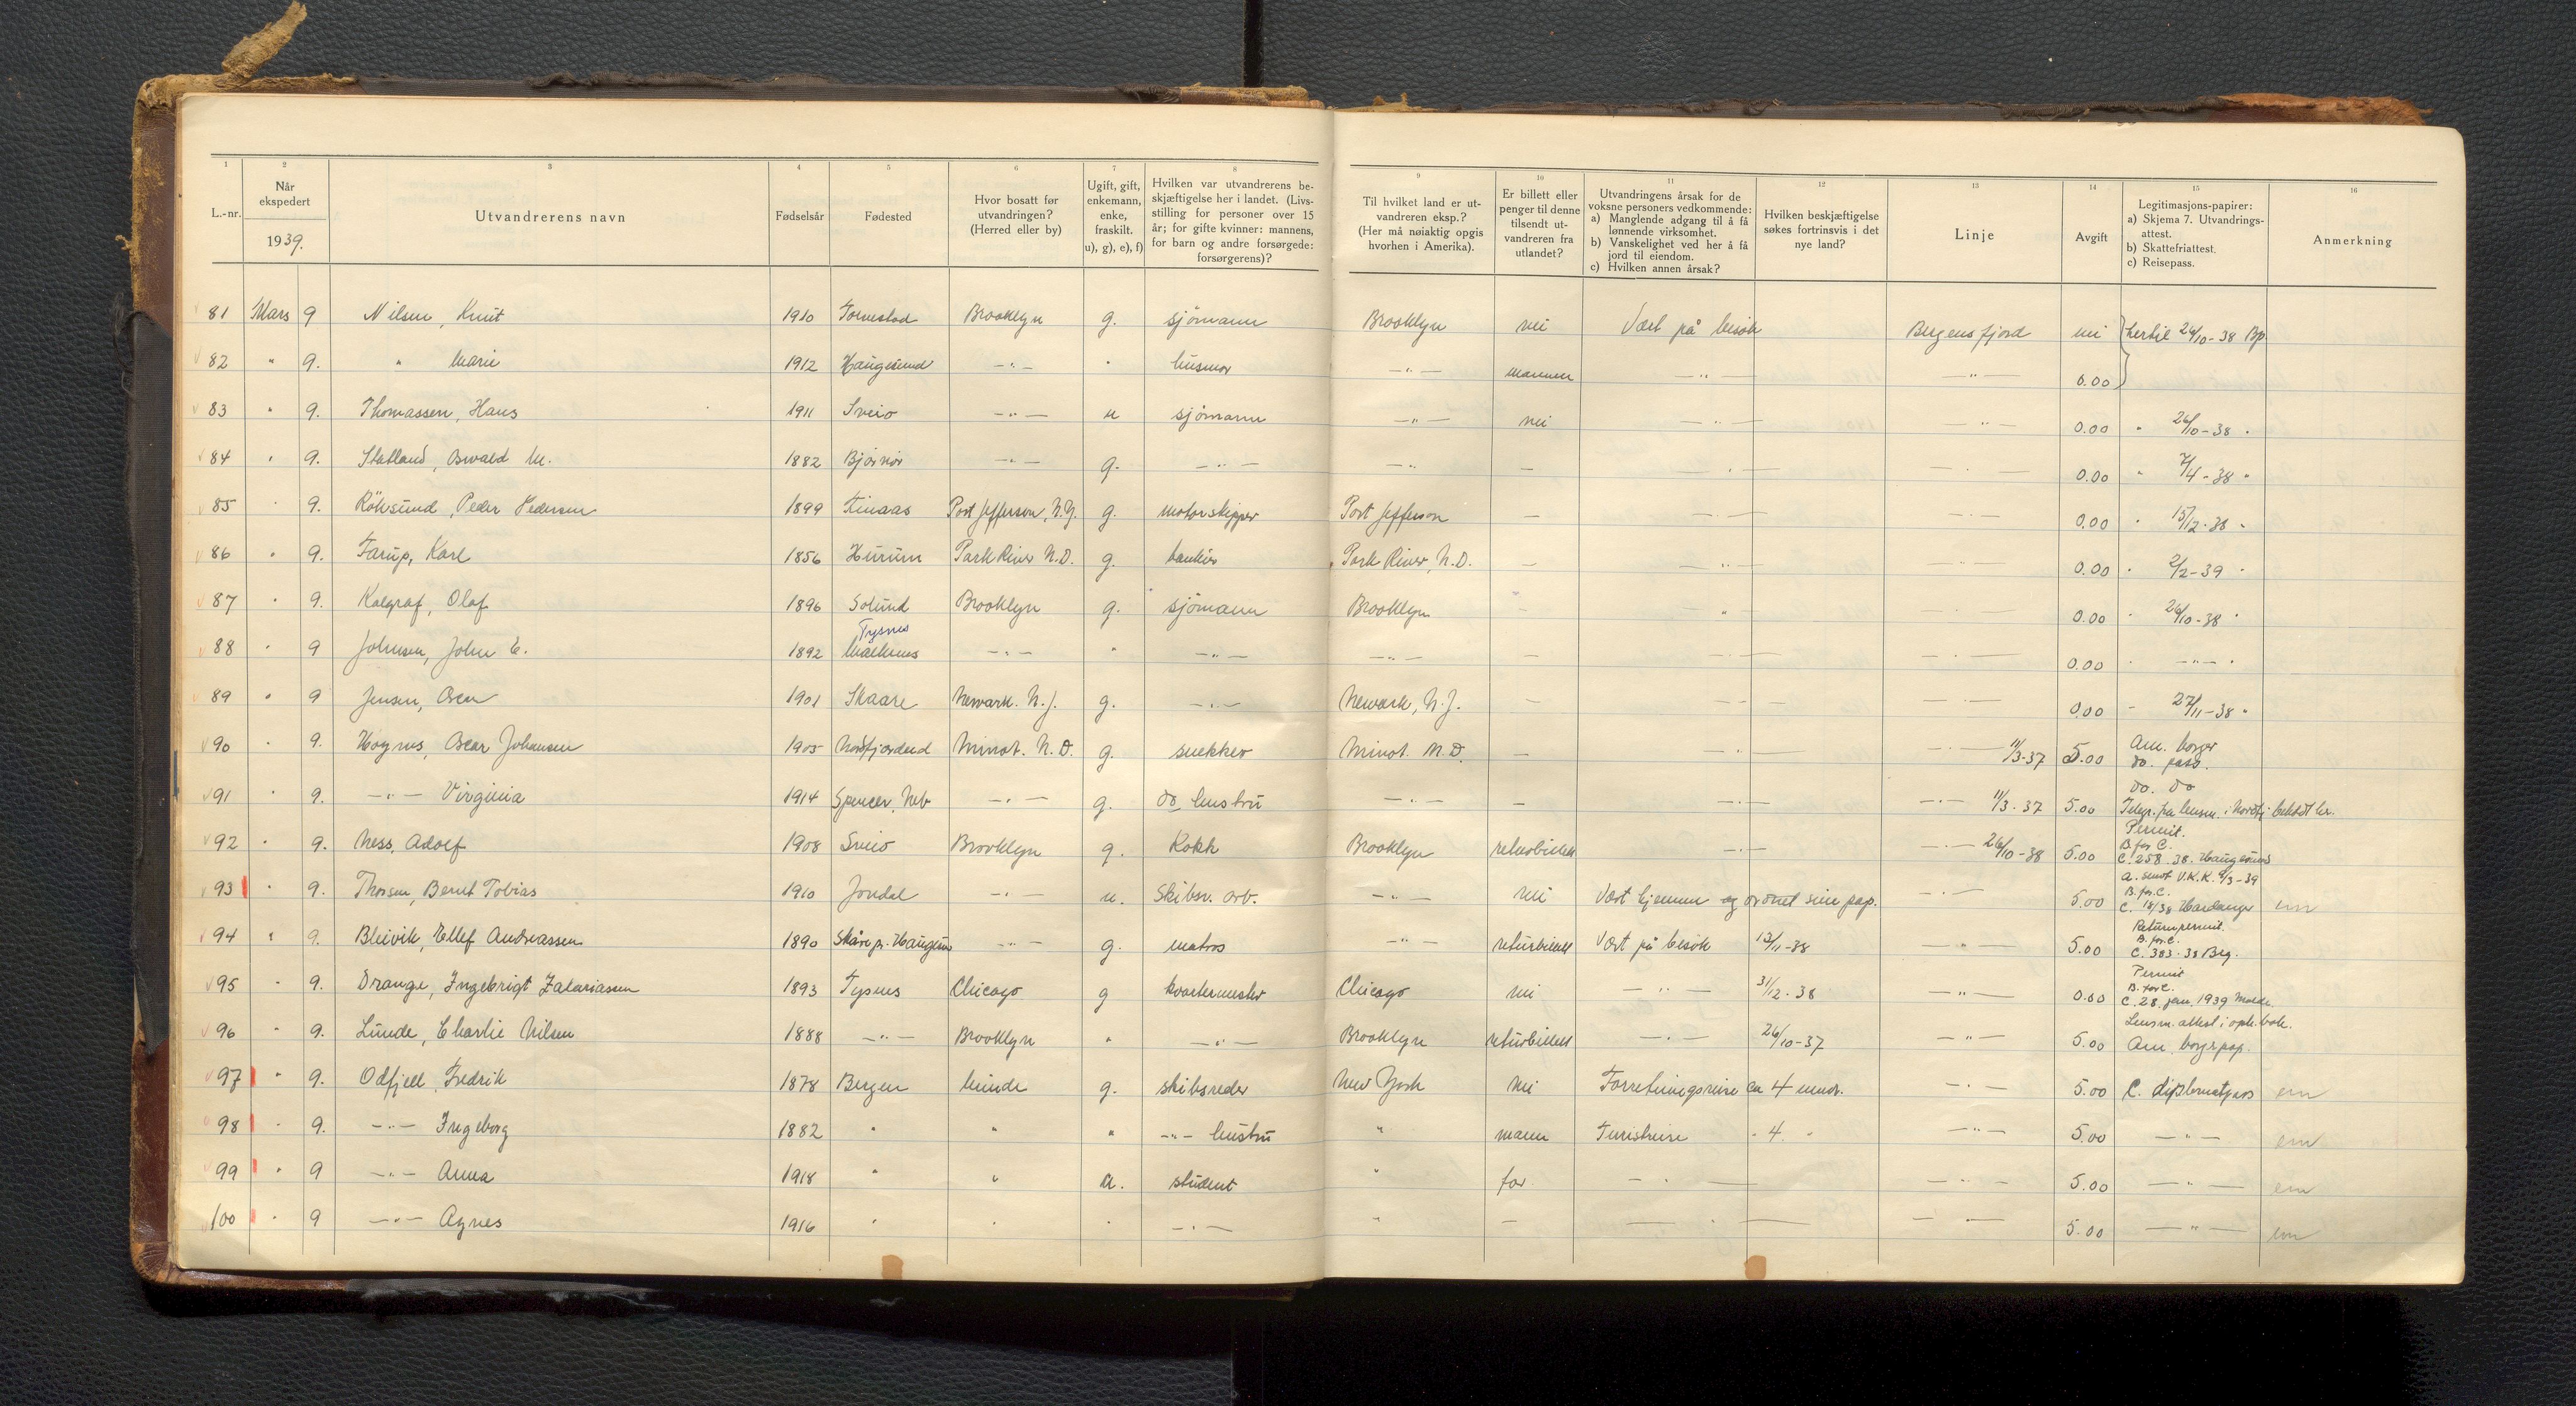 1 2 3 4 5 6 7 8 9 10 11 12 13 14 15 16
L.-nr. Når ekspedert 1939. Utvandrerens navn Fødselsår Fødested Hvor bosatt før utvandringen? (Herred eller by) Ugift, gift, enkemann, enke, fraskilt. u), g), e), f) Hvilken var utvandrerens beskjæftigelse her i landet. (Livsstilling for personer over 15 år; for gifte kvinner: mannens, for barn og andre forsørgede: forsørgerens)? Til hvilket land er utvandreren eksp.? (Her må nøiaktig opgis hvorhen i Amerika). Er billett eller penger til denne tilsendt utvandreren fra utlandet? Utvandringens årsak for de voksne personers vedkommende: a) Manglende adgang til å få lønnende virksomhet. b) Vanskelighet ved her å få jord til eiendom. c) Hvilken annen årsak? Hvilken beskjæftigelse søkes fortrinsvis i det nye land? Linje Avgift Legitimasjons-papirer: a) Skjema 7. Utvandrings-attest. b) Skattefriattest. c) Reisepass. Anmerkning
81 Mars 9 Nilsen, Knut 1910 Torvestad Brooklyn g. sjömann Brooklyn nei Vært på besök Bergensfjord nei hertil 26/10-38 Bp.
82 " 9. " Marie 1912 Haugesund -"- " husmor -"- mannen -"- -"- 0.00
83 " 9. Thomassen, Hans 1911 Sveio -"- u sjömann -"- nei -"- -"- 0.00 " 26/10-38 "
84 " 9. Statland, Oswald M. 1882 Bjørnør -"- g. -"- -"- — -"- -"- 0.00 " 7/4-38 "
85 " 9. Röksund, Peder Pedersen 1899 Finaas Port Jefferson, N.Y. g. motorskipper Port Jefferson — -"- -"- 0.00 " 15/12-38 "
86 " 9. Farup, Karl 1856 Hurum Park River N.D. g. bankier Park River, N.D. — -"- -"- 0.00 " 2/2-39 "
87 " 9. Kalgraf, Olaf 1896 Solund Brooklyn g. sjömann Brooklyn — " -"- 0.00 " 26/10-38 "
Tysnes
88 " 9 Johnsen, John E. 1892 -"- " -"- -"- — -"- -"- 0.00 " -"- "
89 " 9 Jensen, Oscar 1901 Skaare Newark. N.J. g. -"- Newark, N.J. — -"- -"- 0.00 - 27/11-38 "
90 " 9. Høynes, Oscar Johansen 1905 Nordfjordeid Minot. N.D. g. snekker Minot. N.D. — -"- -"- 11/3-37 5.00 Am. borger
do. pass.
91 " 9. -"- Virginia 1914 Spencer, Neb -"- g. do hustru -"- — -"- -"- 11/3-37 5.00 do. do
Telegr. fra lensm. i Nordfj. betalt her.
92 " 9. Ness, Adolf 1908 Sveio Brooklyn g. Kokk Brooklyn returbillett -"- -"- 26/10-38 5.00 Permit.
B. for C.
C. 258.38. Haugesund
93 " 9. Thorsen, Bernt Tobias 1910 Jondal -"- u. Skibsv. arb. -"- nei Vært hjemme og ordnet sine pap. -"- 5.00 a. smot U.K.K. 8/3-39
B. for C.
C. 18/38 Hardanger em
94 " 9. Bleivik, Ellef Andreassen 1890 Skåre pr. Haugesund -"- g. matros -"- returbillett Vært på besök 13/11-38 -"- 5.00 Returnpermit.
B. for C.
C. 383-38 Brg.
95 " 9. Drange, Ingebrigt Zakariassen 1893 Tysnes Chicago g kvartermester Chicago nei -"- 31/12-38 -"- 0.00 Permit
B. for C.
C. 28. jan. 1939 Molde.
96 " 9. Lunde, Charlie Nilsen 1888 -"- Brooklyn " -"- Brooklyn returbillett -"- 26/10-37 -"- 5.00 Lensm. attest i oph. bok.
Am. borgerpap.
97 " 9. Odfjell, Fredrik 1878 Bergen Minde g. skibsreder New York nei Forretningsreise ca 4 mndr. -"- 5.00 C. diplomatpass em
98 " 9. -"- Ingeborg 1882 " " " -"- hustru " mann Turistreise " 4 " -"- 5.00 -"- em
99 " 9 -"- Anna 1918 " " u. student " far -"- -"- 5.00 -"- em
100 " 9 -"- Agnes 1916 " " " -"- " — -"- -"- 5.00 -"- em